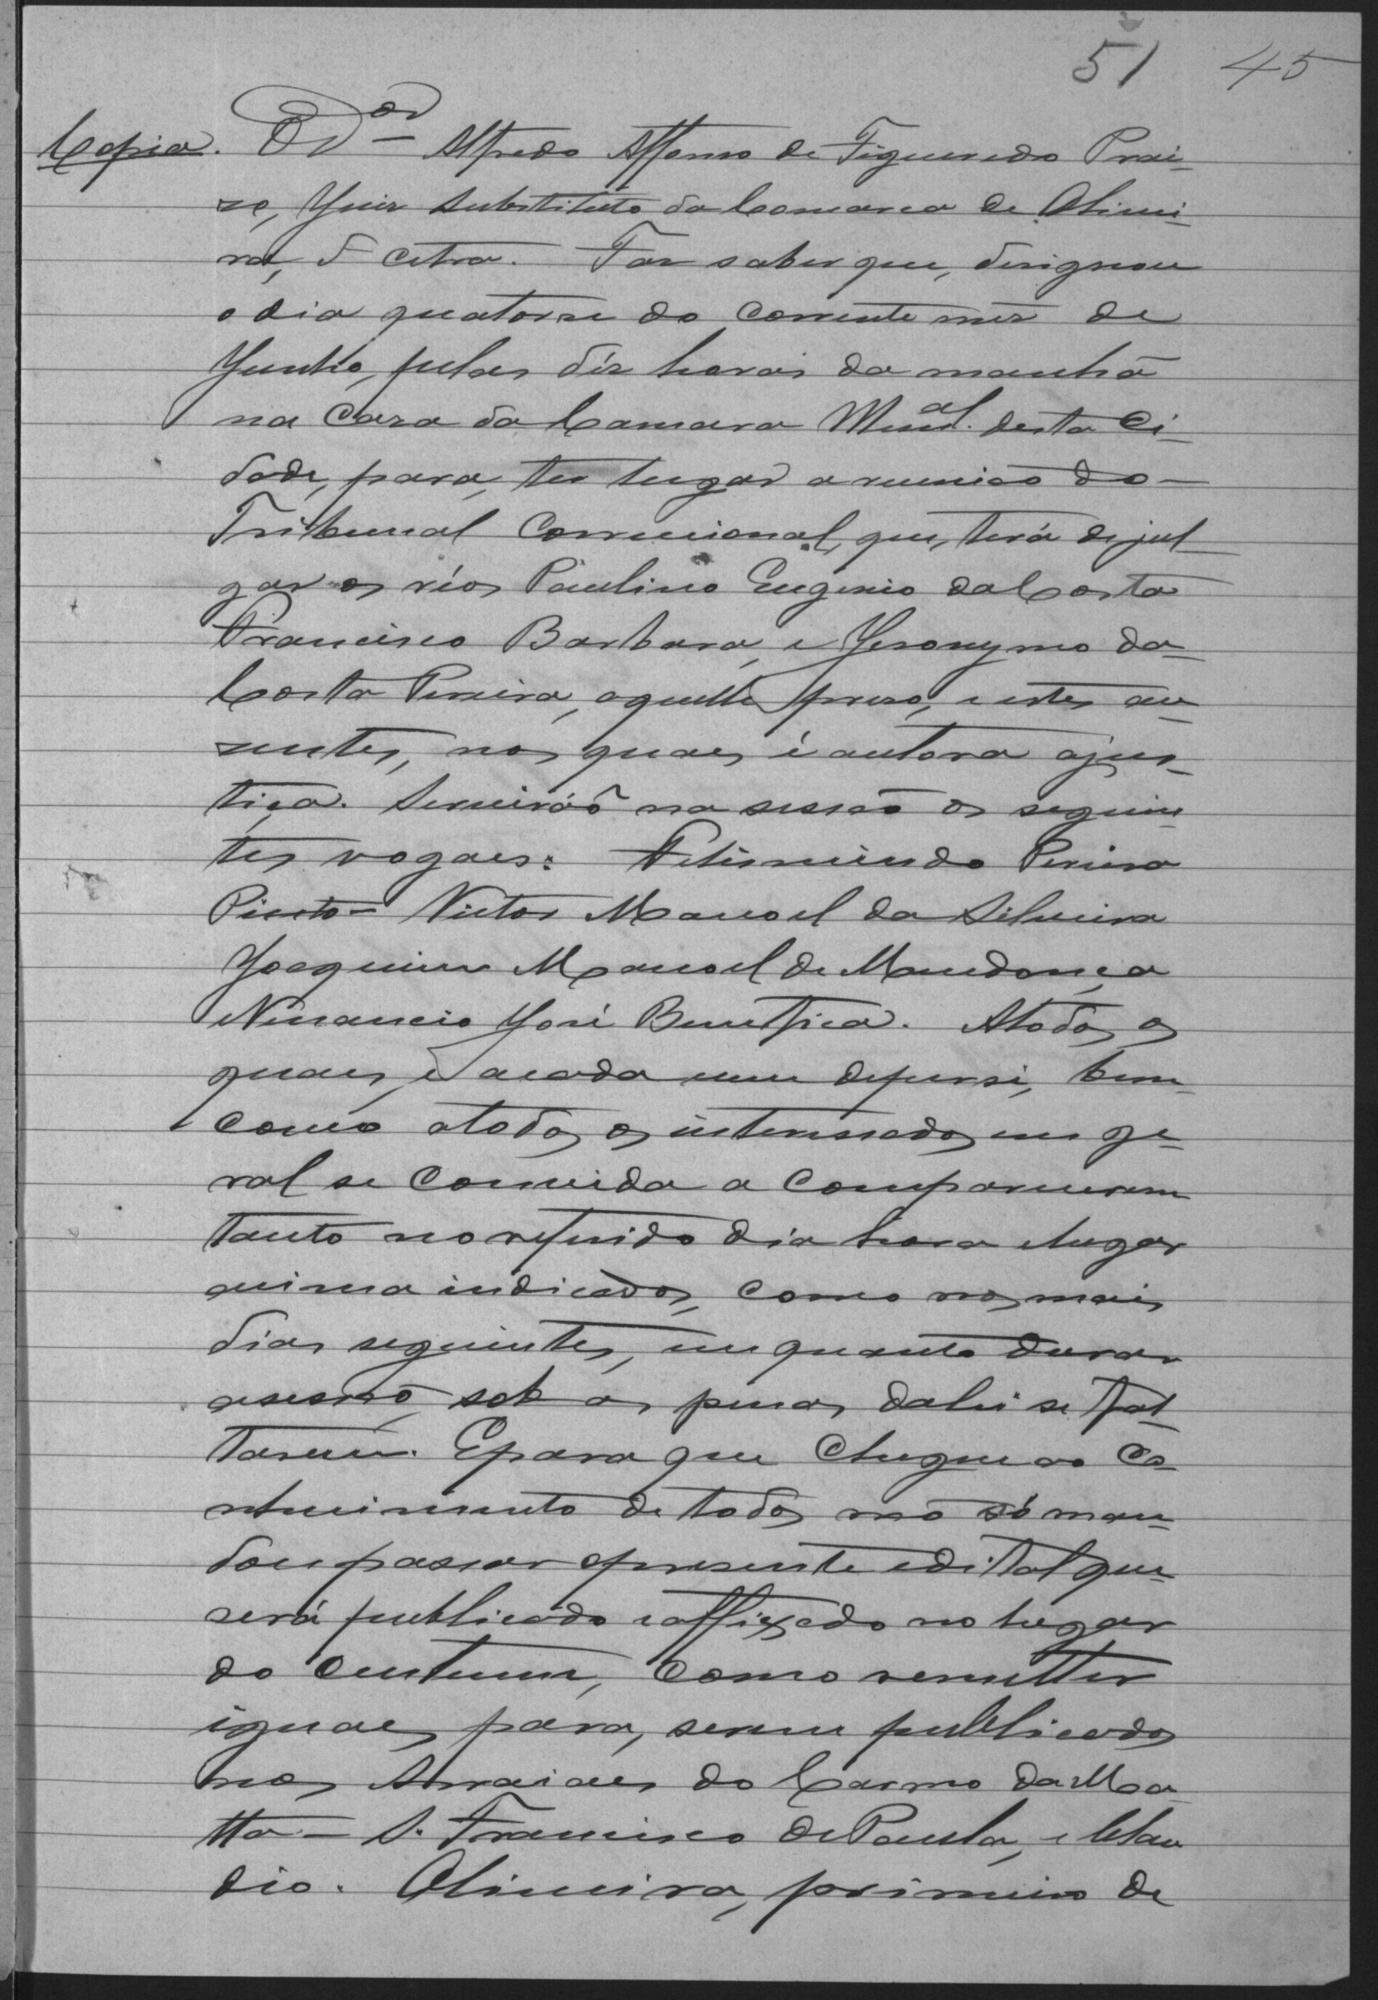 51 45
Copia. O Dor Alfredo Affonso de Figueiredo Prai-
ze, Juiz Substituto da Comarca de Olivei-
ra, & cetra. Faz saber que, designou
o dia quatorze do corrente mez de
Junho, pelas déz horas da manhã
na Caza da Camara Munal. desta Ci-
dade, para, ter lugar a reunião do
Tribunal Correcional, que, terá de jul-
gar os réos Paulino Eugenio da Costa
Francisco Barbara, e Jeronymo da
Costa Pereira, aquelle prezo, e estes au-
zentes, nos quaes é autora a jus-
tiça. Servirão na sessão os seguin-
tes vogaes: Felismindo Pereira
Pinto - Victor Manoel da Silveira
Joaquim Manoel de Mendonça
Venancio José Bemfica. A todos os
quaes, e a cada um deper si, bem
como a todos os interessados em ge-
ral se convida a comparecerem
tanto no referido dia hora e lugar
acima indicados, como nos mais
dias seguintes, em quanto durar
a sessão, sob as penas da lei se fal-
tarem. E para que chegue ao co-
nhecimento de todos não só man-
dou passar o presente edital que
será publicado e affixado no lugar
do custume, como remetter
iguaes para, serem publicados
nos Arraiaes do Carmo da Ma-
tta - S. Francisco de Paula, e Clau
dio. Oliveira, primeiro de